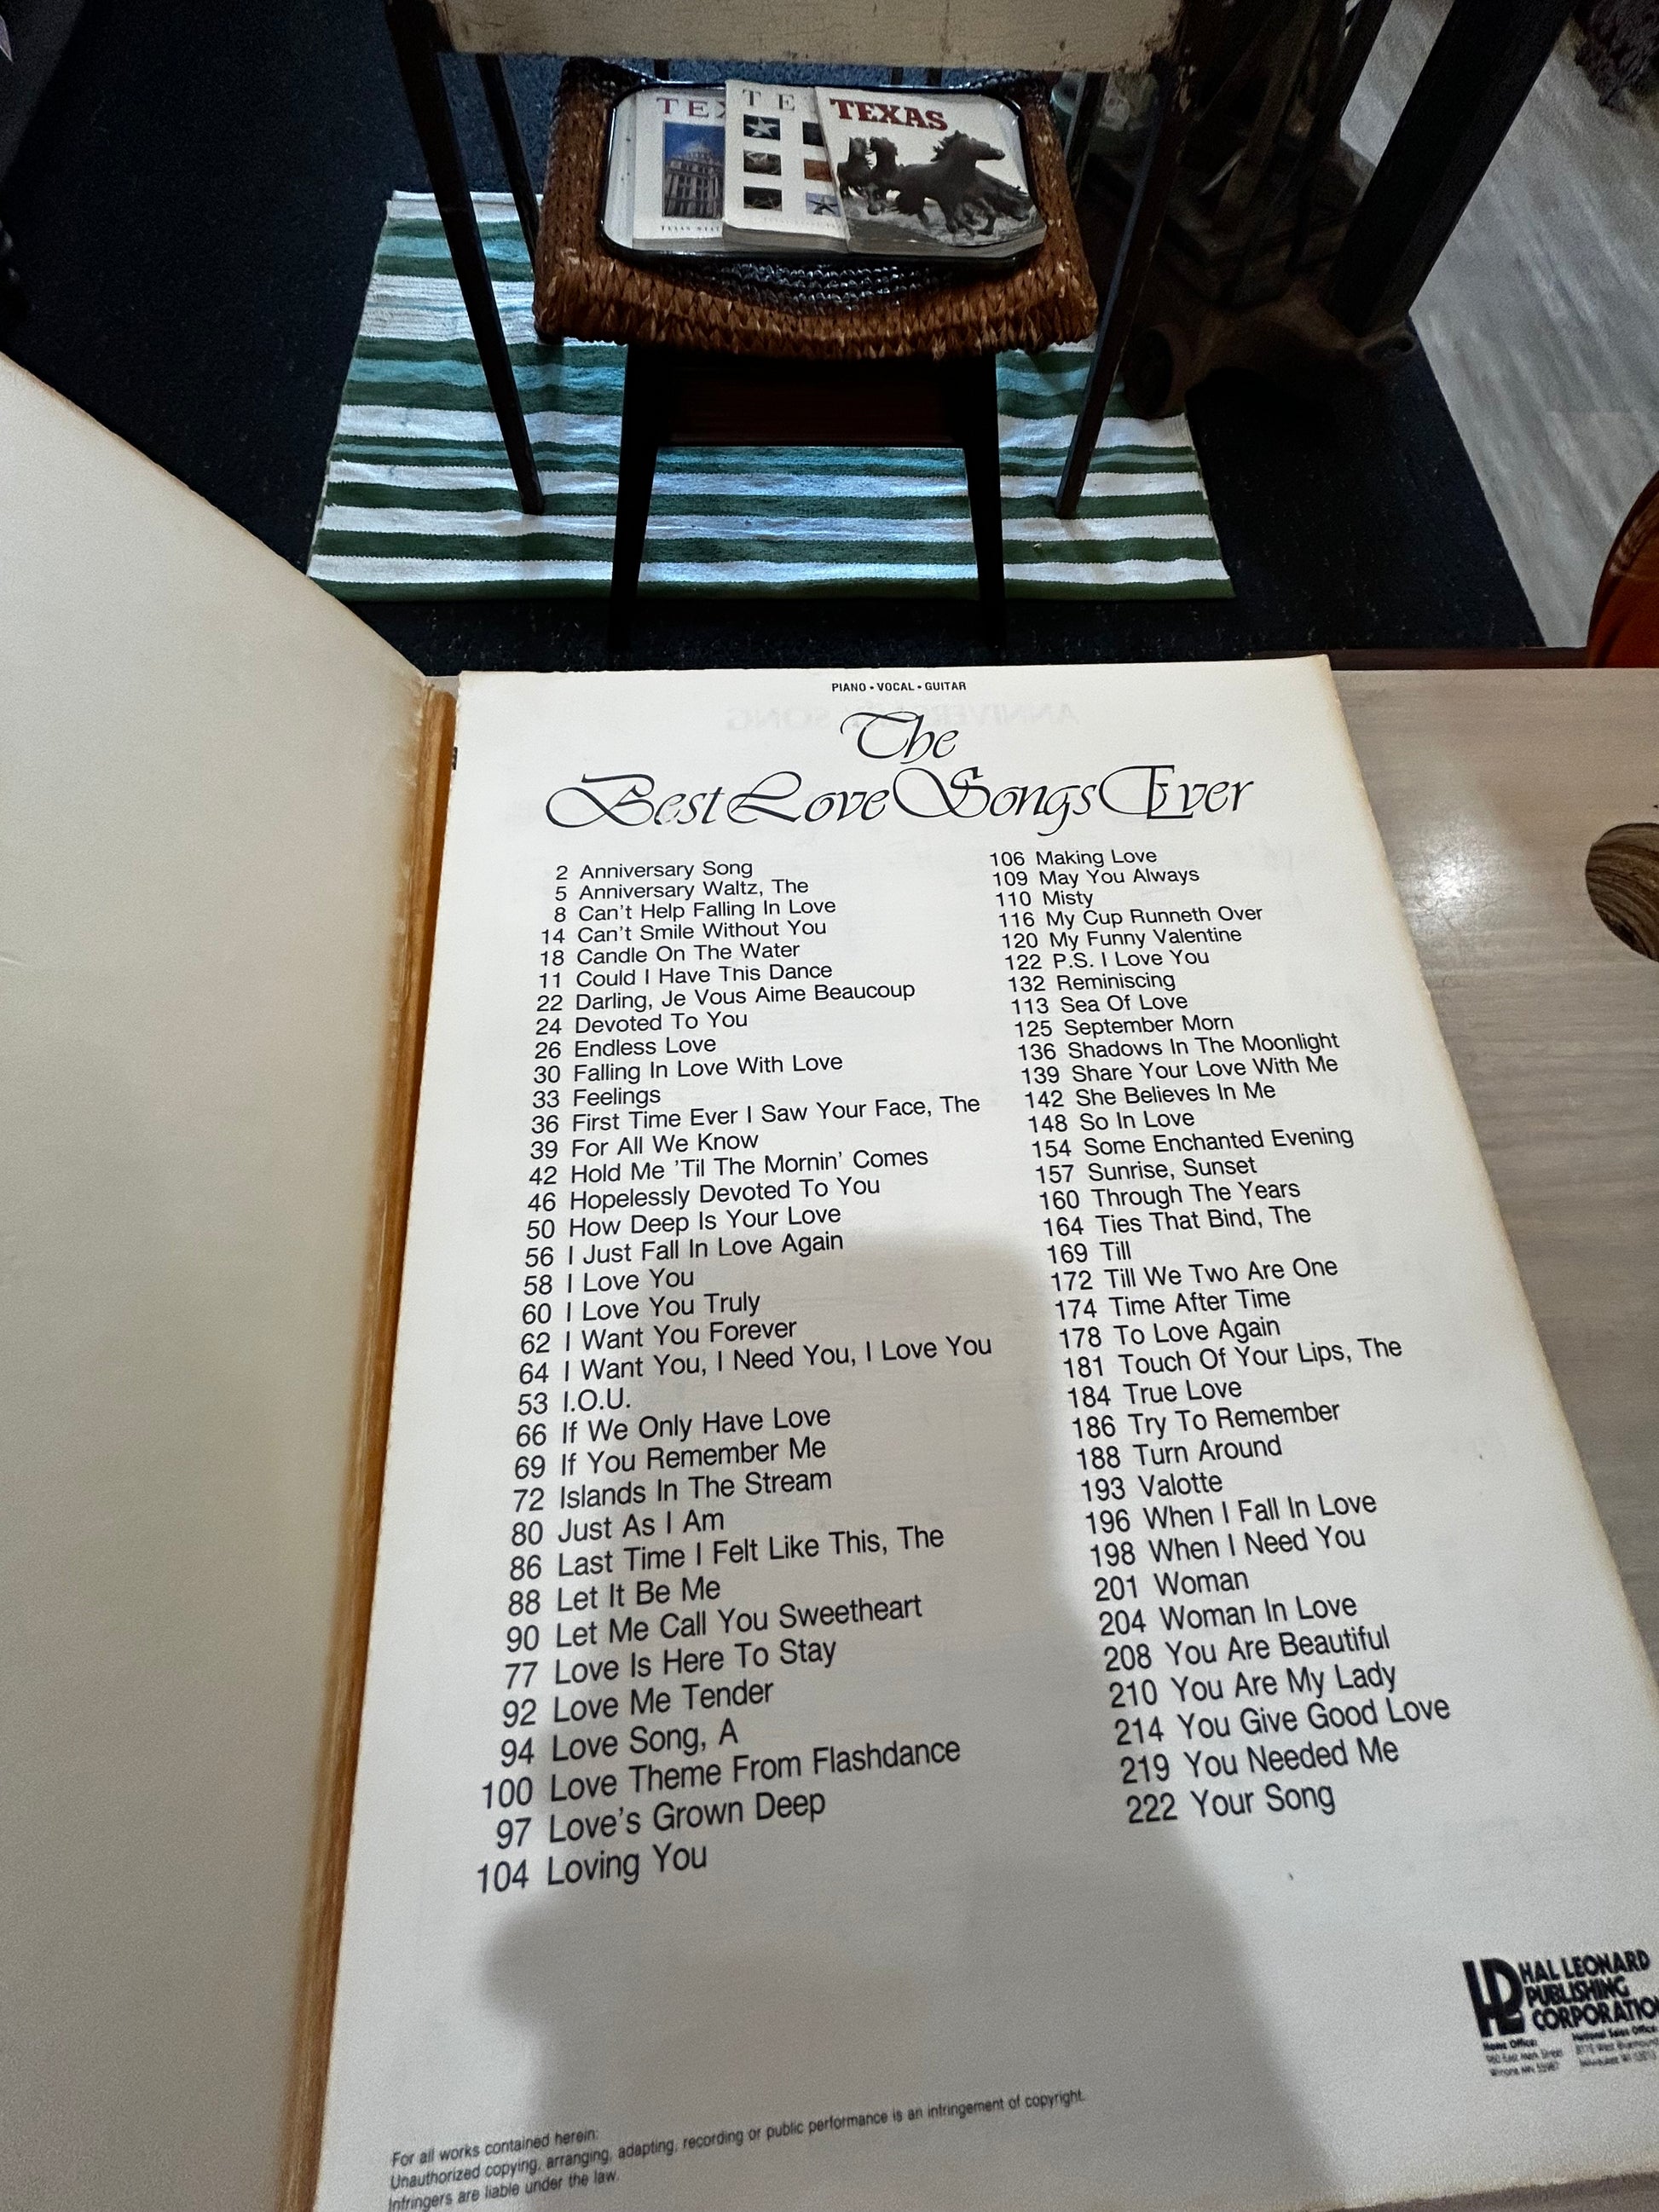 TEX
TE
TEXAS
PIANO • VOCAL • GUITAR
The
Best Love Songs Ever
2 Anniversary Song
5 Anniversary Waltz, The
8 Can't Help Falling In Love
14 Can't Smile Without You
18 Candle On The Water
11 Could I Have This Dance
22 Darling, Je Vous Aime Beaucoup
24 Devoted To You
26 Endless Love
30 Falling In Love With Love
33 Feelings
36 First Time Ever I Saw Your Face, The
39 For All We Know
42 Hold Me 'Til The Mornin' Comes
46 Hopelessly Devoted To You
50 How Deep Is Your Love
56 I Just Fall In Love Again
58 I Love You
60 I Love You Truly
62 I Want You Forever
64 I Want You, I Need You, I Love You
53 I.O.U.
66 If We Only Have Love
69 If You Remember Me
72 Islands In The Stream
80 Just As I Am
86 Last Time I Felt Like This, The
88 Let It Be Me
90 Let Me Call You Sweetheart
77 Love Is Here To Stay
92 Love Me Tender
94 Love Song, A
100 Love Theme From Flashdance
97 Love's Grown Deep
104 Loving You
106 Making Love
109 May You Always
110 Misty
116 My Cup Runneth Over
120 My Funny Valentine
122 P.S. I Love You
132 Reminiscing
113 Sea Of Love
125 September Morn
136 Shadows In The Moonlight
139 Share Your Love With Me
142 She Believes In Me
148 So In Love
154 Some Enchanted Evening
157 Sunrise, Sunset
160 Through The Years
164 Ties That Bind, The
169 Till
172 Till We Two Are One
174 Time After Time
178 To Love Again
181 Touch Of Your Lips, The
184 True Love
186 Try To Remember
188 Turn Around
193 Valotte
196 When I Fall In Love
198 When I Need You
201 Woman
204 Woman In Love
208 You Are Beautiful
210 You Are My Lady
214 You Give Good Love
219 You Needed Me
222 Your Song
HL HAL LEONARD
PUBLISHING
CORPORATIO
Home Office:
National Sales Office:
For all works contained herein:
Unauthorized copying, arranging, adapting, recording or public performance is an infringement of copyright.
Infringers are liable under the law.